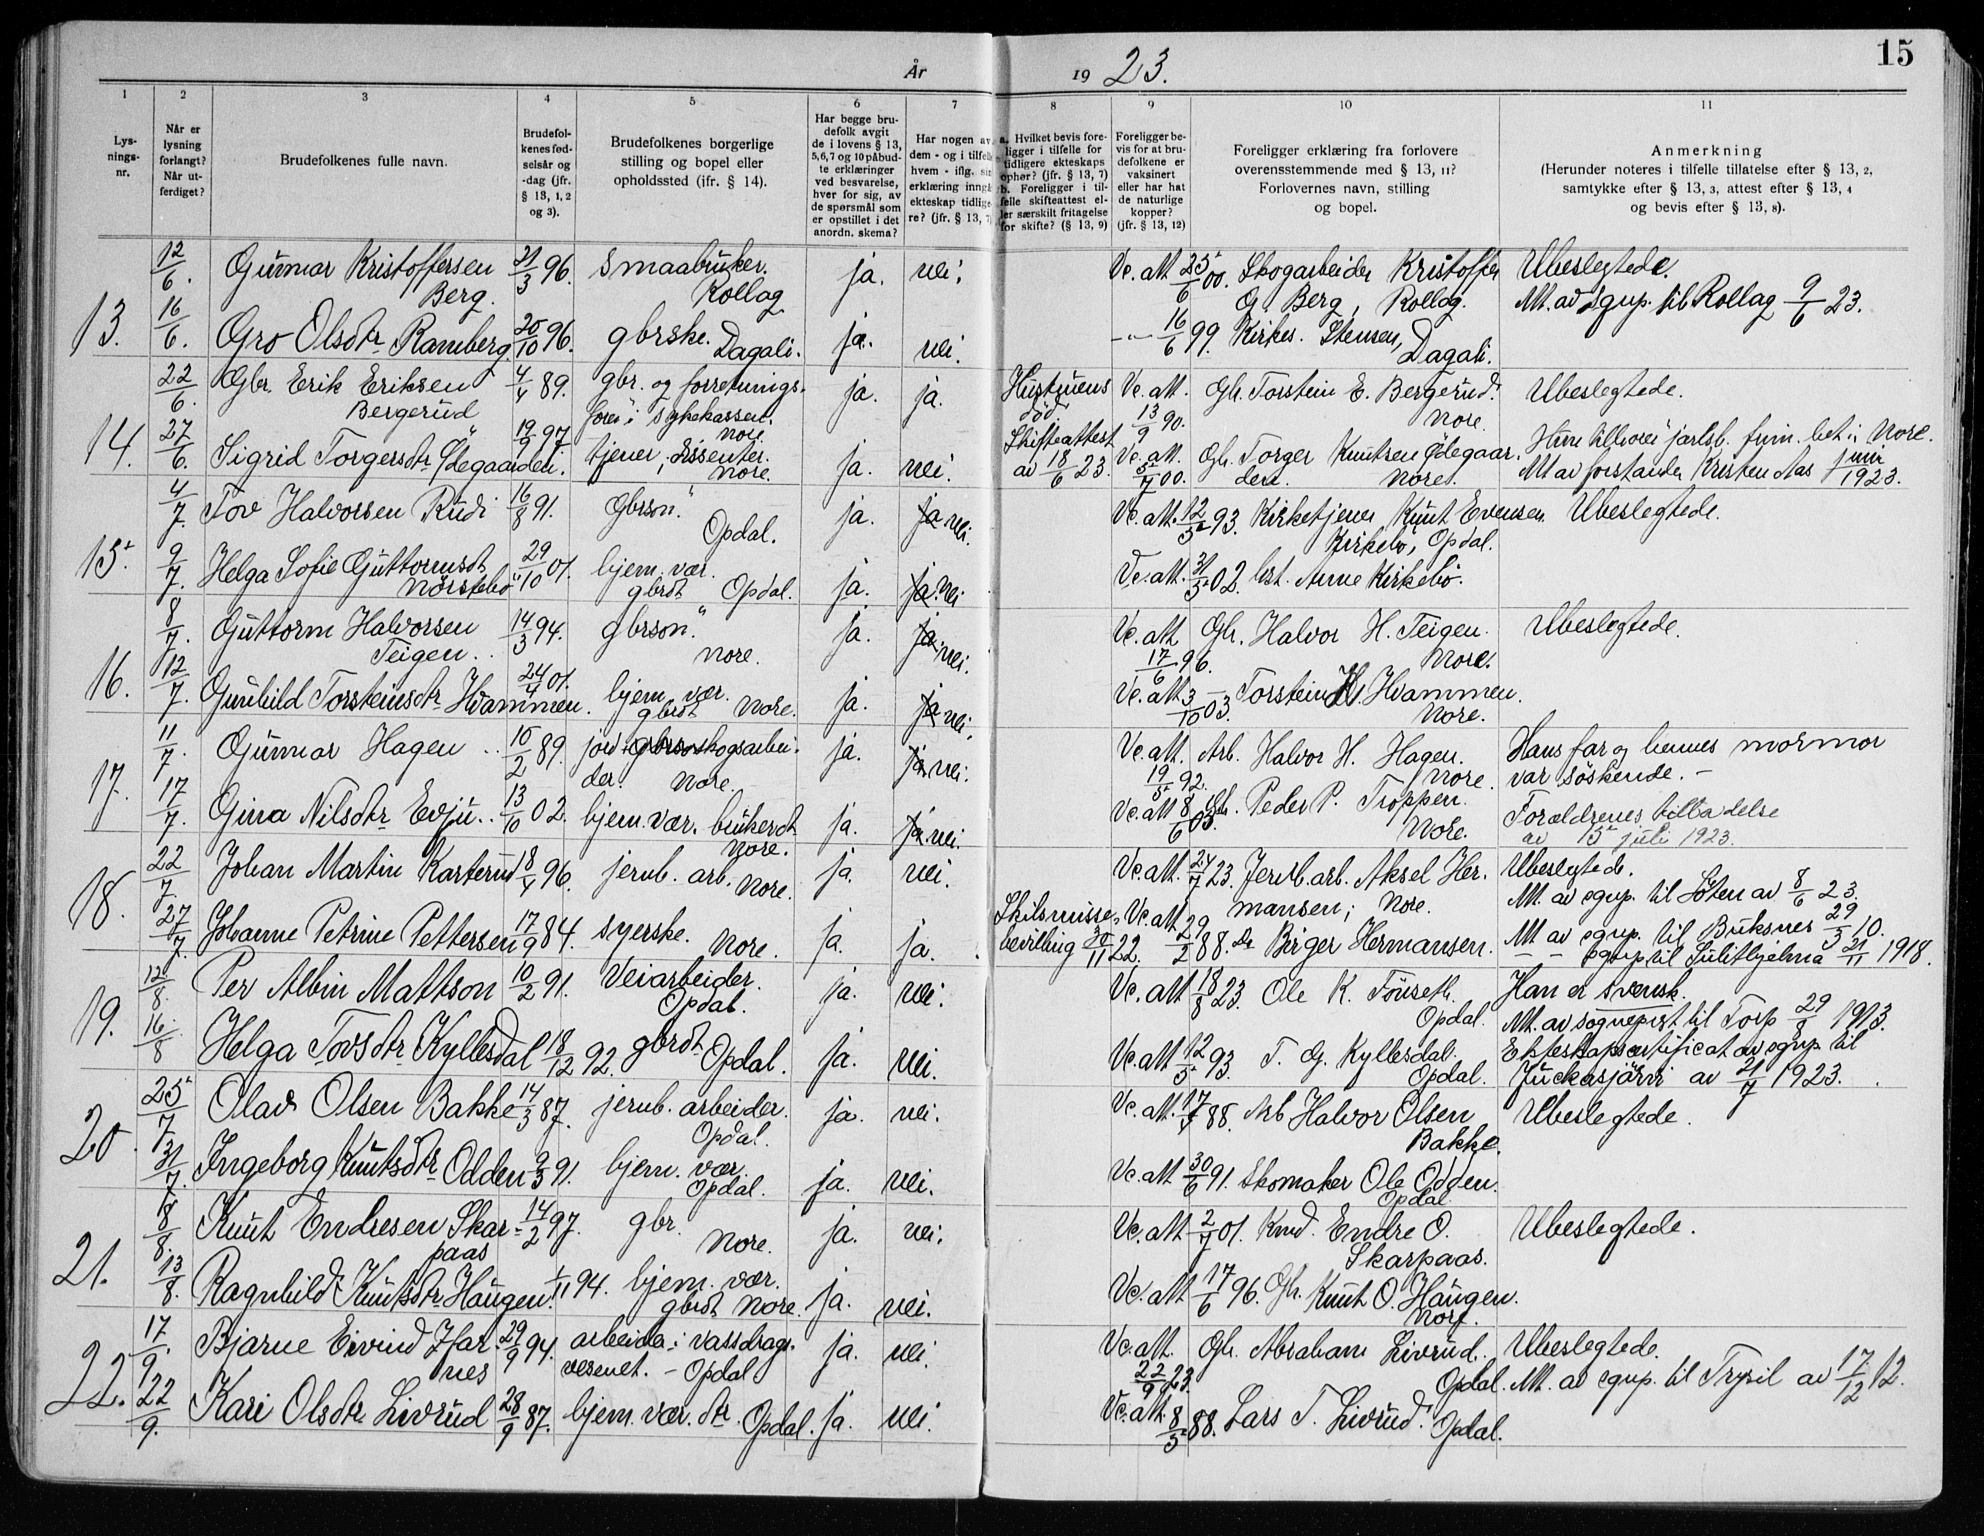 År 19 23.
15
1 2 3 4 5 6 7 8 9 10 11
Lys-
nings-
nr.
Når er
lysning
forlangt?
Når ut-
ferdiget?
Brudefolkenes fulle navn.
Brudefol-
kenes fød-
selsår og
-dag (jfr.
§ 13, 1, 2
og 3).
Brudefolkenes borgerlige
stilling og bopel eller
opholdssted (ifr. § 14).
Har begge bru-
defolk avgit
de i lovens § 13,
5, 6, 7 og 10 påbud-
te erklæringer
ved besvarelse,
hver for sig, av
de spørsmål som
er opstillet i det
anordn. skema?
Har nogen av
dem - og i tilfelle
hvem - iflg. sin
erklæring inngå
ekteskap tidlige-
re? (jfr. § 13, 7)
a. Hvilket bevis fore-
ligger i tilfelle for
tidligere ekteskaps
ophør? (jfr. § 13, 7)
b. Foreligger i til-
felle skifteattest el-
ler særskilt fritagelse
for skifte? (§ 13, 9)
Foreligger be-
vis for at bru-
defolkene er
vaksinert
eller har hat
de naturlige
kopper?
(jfr. § 13, 12)
Foreligger erklæring fra forlovere
overensstemmende med § 13, 11?
Forlovernes navn, stilling
og bopel.
Anmerkning
(Herunder noteres i tilfelle tillatelse efter § 13, 2,
samtykke efter § 13, 3, attest efter § 13, 4
og bevis efter § 13, 8).
13.
12/6. Gunnar Kristoffersen Berg. 21/3 96. Smaabruker. Kollag ja. nei. Vc. att. 25/6 00. Skogarbeider Kristoffer G. Berg, Rollag. Ubeslegtede.
Att. av sgnp. til Rollag 9/6 23.
16/6. Gro Olsdtr Ramberg 20/10 96. gbrske. Dagali. ja. nei. -"- 16/6 99. Kirkes. Stensen, Dagali.
14.
22/6. Gbr. Erik Eriksen Bergerud 4/4 89. gbr. og forretnings-
fører i sykekassen. Nore ja. ja. Hustruens død Vc. att. 13/9 90. Gbr. Torstein E. Bergerud. Nore. Ubeslegtede.
27/6. Sigrid Torgersdtr Ødegaarden. 19/9 97 tjener, dissenter. Nore. ja. nei. Skifteattest av 18/6 23. Vc. att. 5/7 00. Gbr. Torger Knutsen Ødegaarden. Nore. Hun tilhører jarlsb. frim. bet. i Nore.
Att av forstander Kristen Aas juni 1923.
15.
4/7. Tov Halvorsen Rudi 16/8 91. Gbrsøn. Opdal. ja. ja nei. Vc. att. 12/5 93. Kirketjener Knut Evensen Kirkebø, Opdal. Ubeslegtede.
9/7. Helga Sofie Guttormsdt Nørstebø 29/10 01. hjem. vær. gbrdt Opdal. ja. ja. nei Vc. att. 31/5 02. Anne Kirkebø.
16.
8/7. Guttorm Halvorsen Teigen. 14/3 94. gbrsøn. Nore. ja. ja. nei. Vc. att. 17/6 96. Gbr. Halvor H. Teigen. Nore. Ubeslegtede.
12/7. Gunhild Torsteinsdtr Hvammen. 24/4 01. hjem. vær. gbrdt Nore. ja. ja nei. Vc. att 3/10 03. - Torstein K. Hvammen. Nore.
17.
11/7 Gunnar Hagen .. 10/2 89. jord- skogsarbei-
der. Nore. ja. ja nei. Vc. att. 19/5 92. Arb. Halvor H. Hagen. Nore Hans far og hennes mormor
var søskende. -
17/7. Gina Nilsdtr Evju.. 13/10 02. hjem. vær. brukerdt. Nore. ja. ja. nei. Vc. att 8/6 03. Gbr. Peder P. Troppen. Nore. Forældrenes tilladelse
av 15 juli 1923.
18.
22/7 Johan Martin Karterud 18/4 96. jernb. arb. Nore. ja. nei. Vc. att. 24/7 23. Jernb. arb. Aksel Her-
mansen; Nore. Ubeslegtede.
Att. av sgnp. til Løten av 8/6 23.
27/7 Johanne Petrine Pettersen 17/9 84. syerske. Nore. ja. ja. Skilsmisse-
bevilling 20/11 22. Vc. att 29/2 88. Do Birger Hermansen. Att av sgnp. til Buksnes 29/3 10.
- - sgnp til Sulithjelma 21/11 1918.
19.
12/8. Per Albin Mattson 10/2 91. Veiarbeider. Opdal. ja. nei. Vc. att 18/8 23. Ole K. Tønseth. Opdal. Han er svensk.
Att. av sogneprst til Torp 29/8 1913.
16/8 Helga Tovsdtr Kyllesdal 18/12 92. gbrdt Opdal. ja. nei. Vc. att 12/5 93. T. G. Kyllesdal. Opdal. Ekteskapscertificat av sgnp til
Juckasjärvi av 21/7 1923.
20.
25/7 Olav Olsen Bakke 14/3 87. jernb. arbeider. Opdal. ja. nei. Vc. att. 17/5 88. Arb Halvor Olsen Bakke. Ubeslegtede.
31/7. Ingeborg Knutsdtr Odden 9/3 91. hjem. vær. Opdal. ja. nei. Vc. att 30/6 91. Skomaker Ole Odden. Opdal
21.
8/8. Knut Endresen Skar-
paas 14/2 97. gbr. Nore. ja. nei. Vc. att. 2/7 01. Endre O. Skarpaas. Ubeslegtede.
13/8. Ragnhild Knutsdtr Haugen. 1/11 94. hjem. vær. gbrdt Nore. ja. nei. Vc. att 17/6 96. Gbr. Knut O. Haugen. Nore.
22.
17/9. Bjarne Eivind Har-
nes 29/9 94. arbeider i vassdrags-
vesenet. - Opdal ja. nei. Vc. att. 22/9 23. Gbr. Abraham Livrud. Opdal. Ubeslegtede.
Att. av sgnp. til Trysil av 17/12 12.
22/9. Kari Olsdtr Livrud 28/9 87. hjem. vær. dtr. Opdal. ja. nei. Vc. att. 8/5 88. Lars T. Livrud. Opdal.